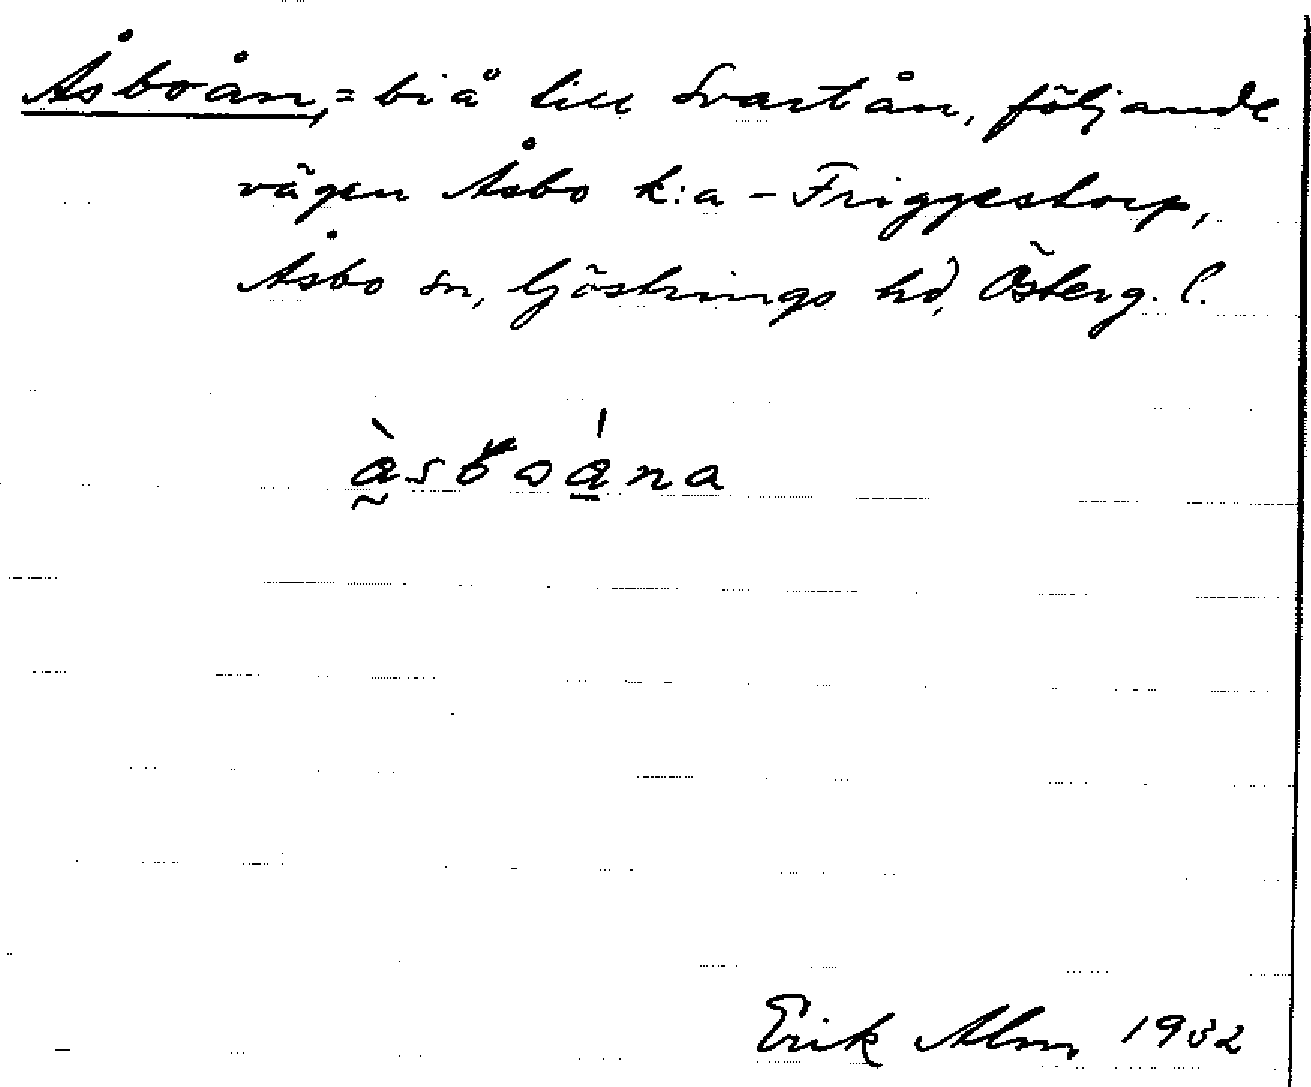 Åsboån, = biå till Svartån, följande
vägen Åsbo k:a - Friggestorp,
Åsbo sn, Göstrings hd, Österg. l.
Erik Alm 1932